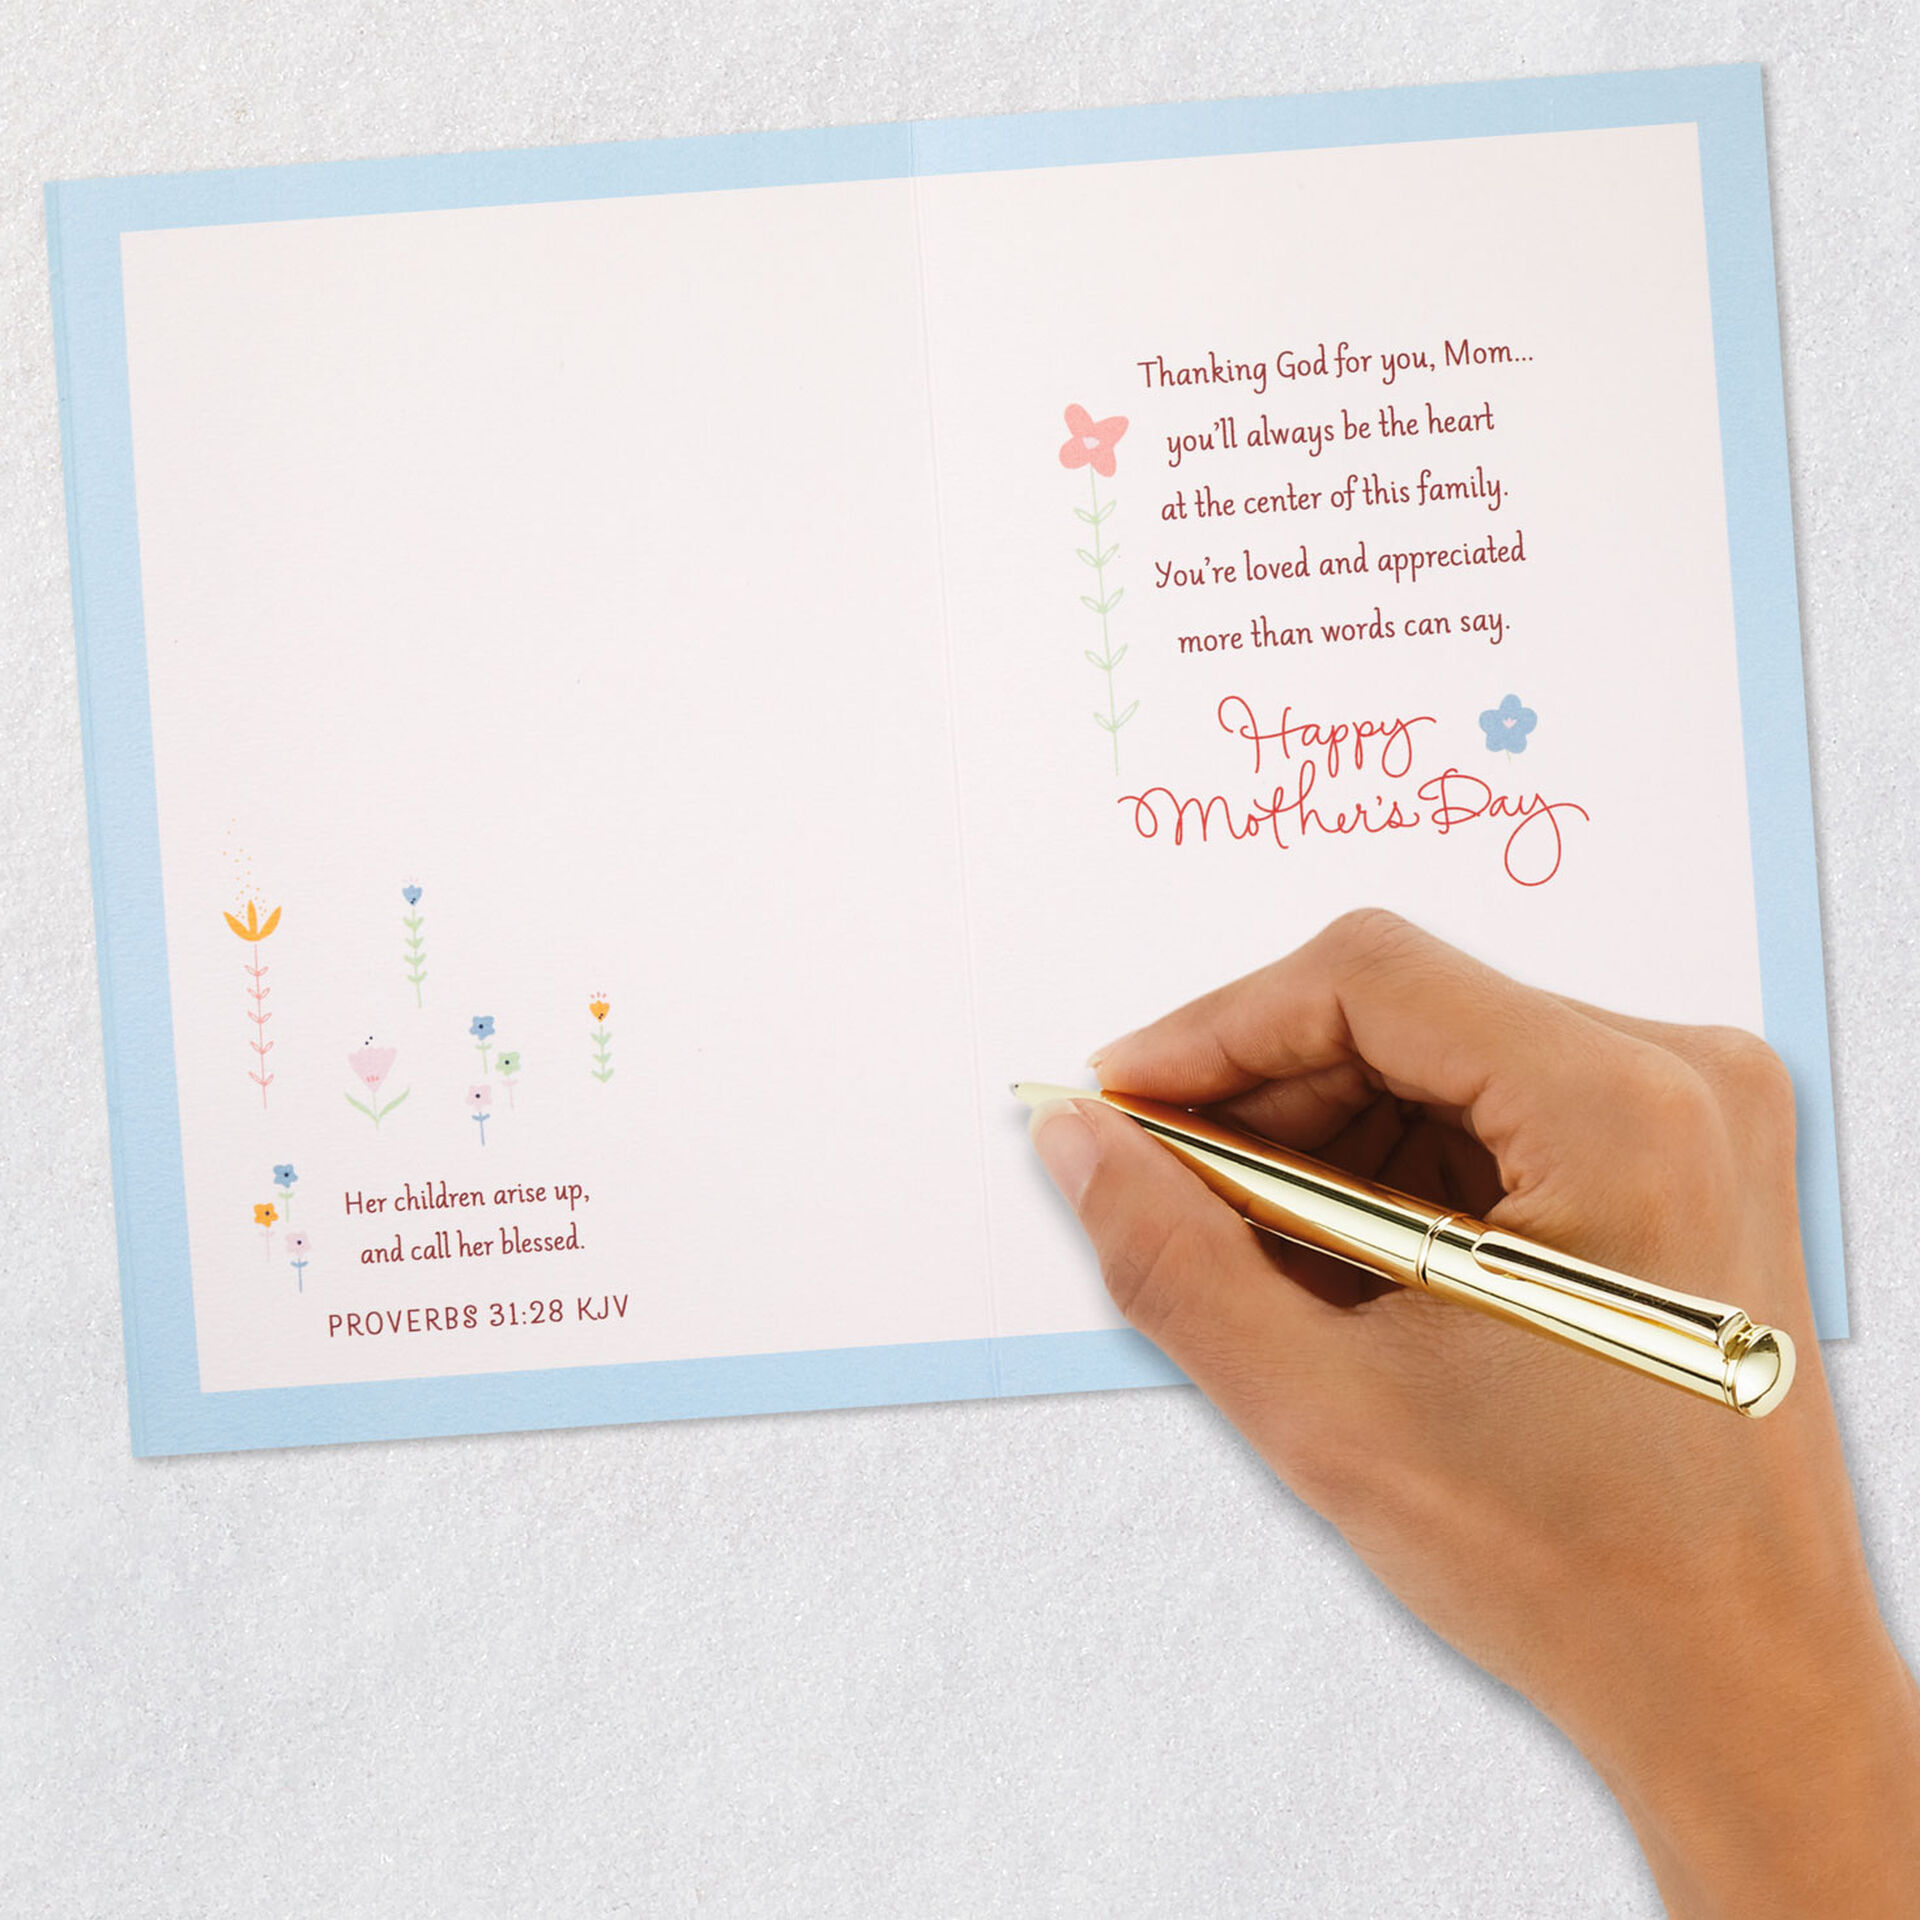 Her children arise up,
and call her blessed.
PROVERBS 31:28 KJV
Thanking God for you, Mom...
you'll always be the heart
at the center of this family.
You're loved and appreciated
more than words can say.
Happy
Mother's Day